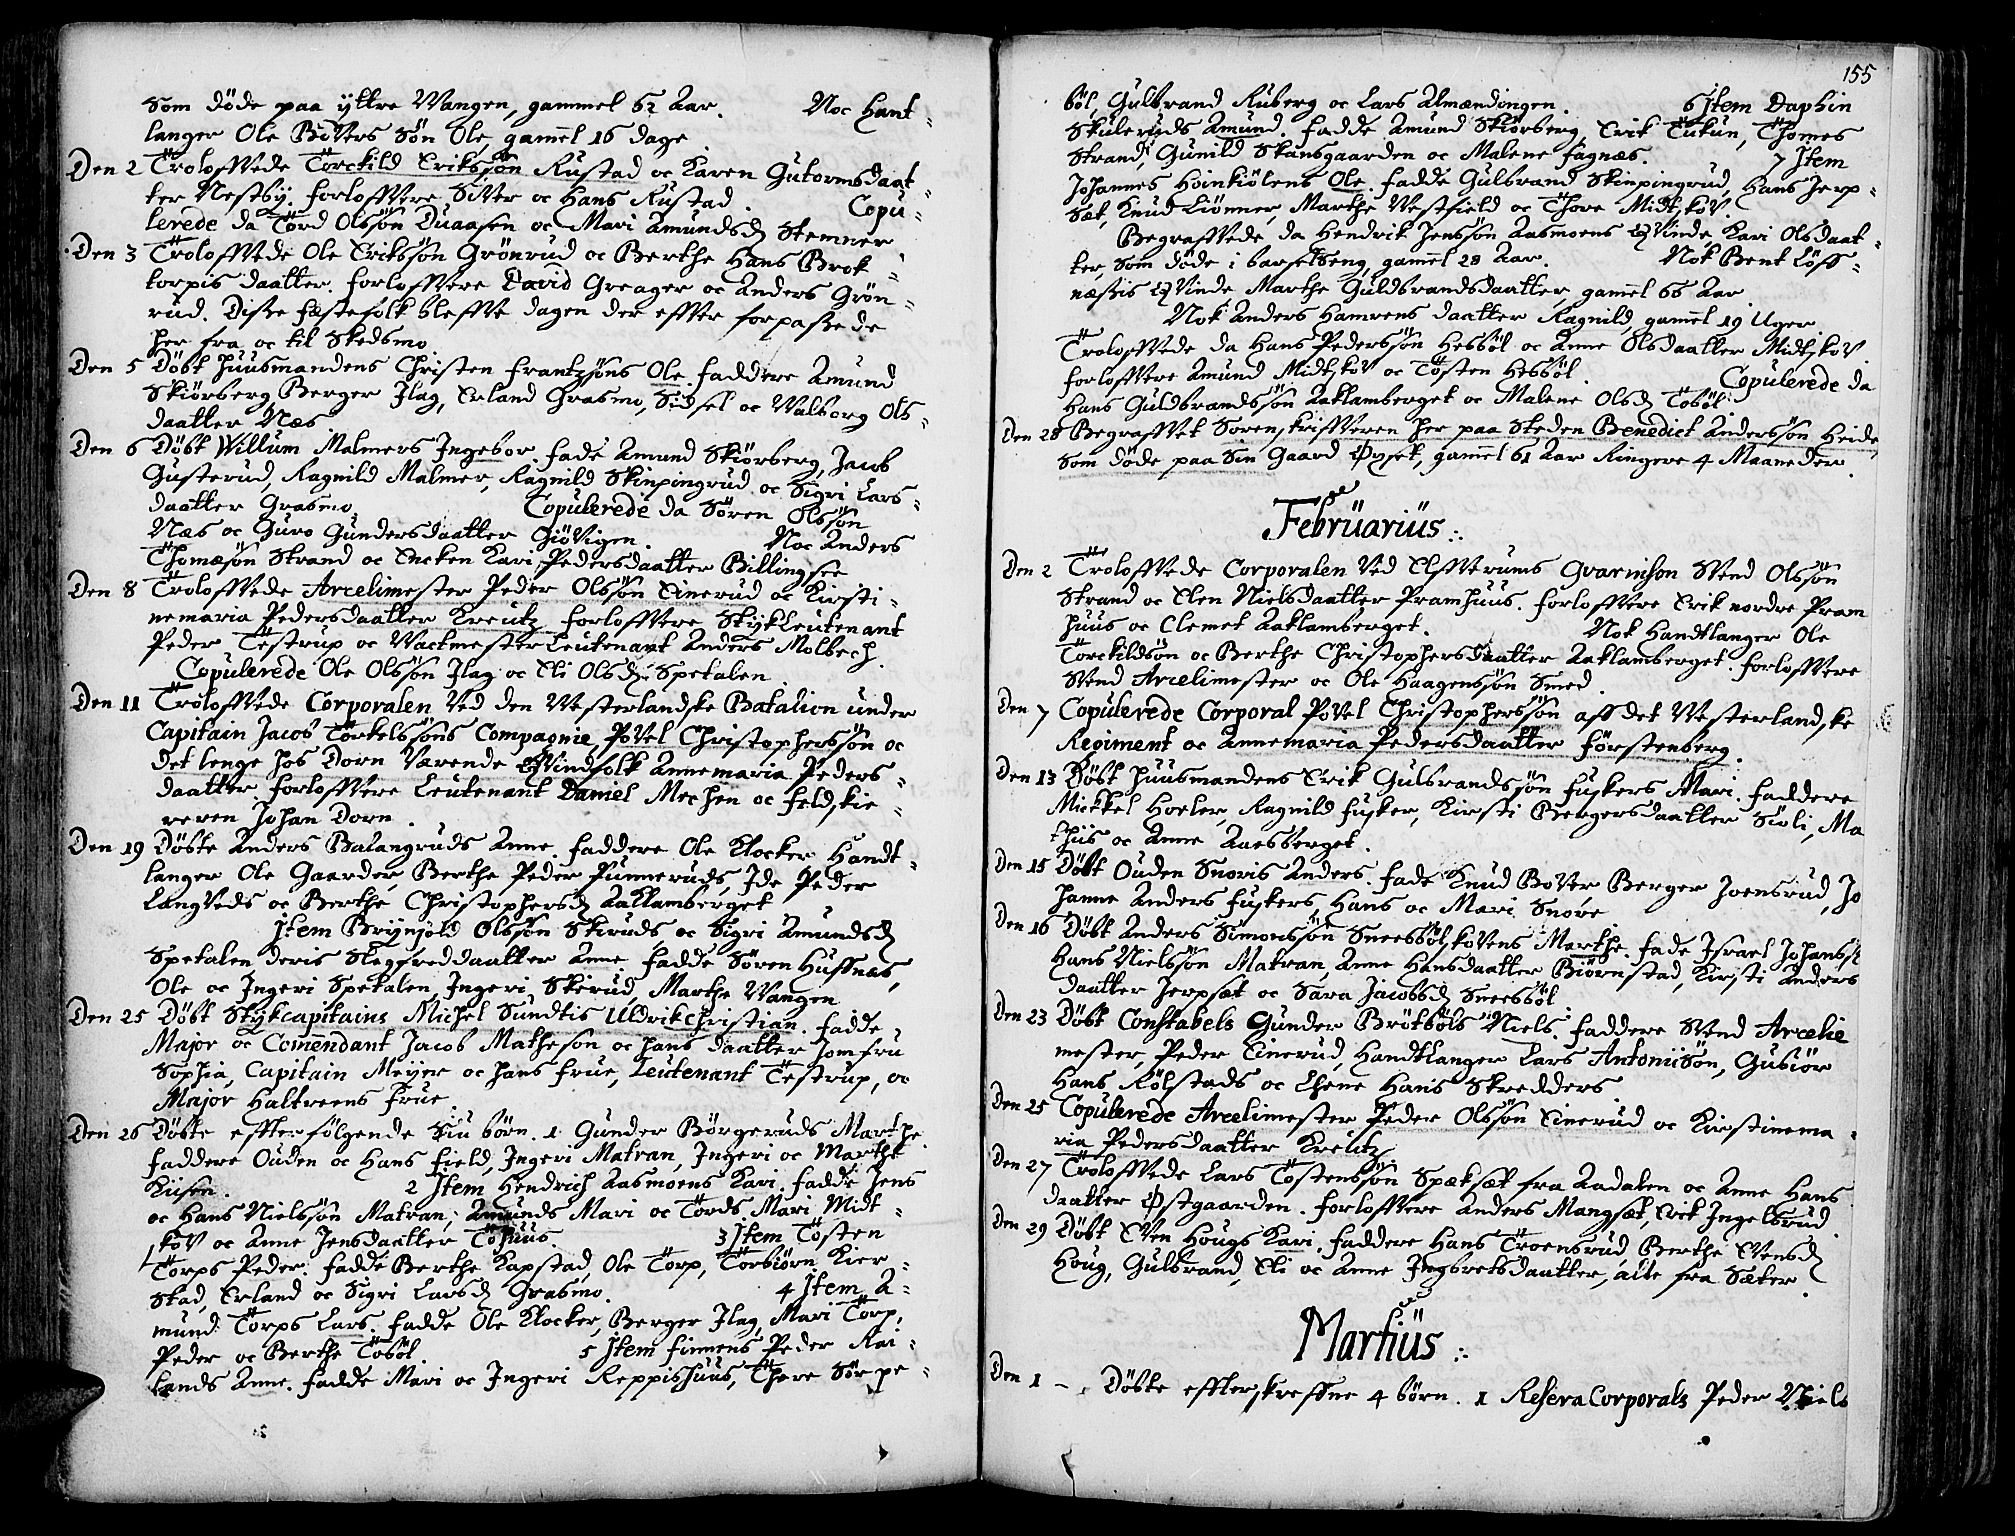 Som døde paa yttre Wangen, gammel 62 Aar. Noc Hant-
langer Ole Bovers Søn Ole, gamel 16 dage
Den 2 Troloffvede Torckild Erikssøn Rustad oc Karen Gutormsdaat-
ter Nestby. forloffvere Siver oc Hans Rustad. Copu-
lerede da Tord Olssøn Duaasen oc Mari Amundsd Stemner
Den 3 Troloffvede Ole Erikssøn Grønrud oc Berthe Hans Brok-
torpis daatter. forloffvere David Greager oc Anders Grøn-
rud. Disse fæstefolk bleffve dagen der effter forpassede
her fra oc til Skedsmo
Den 5 Døbt Huusmandens Christen Frantzsøns Ole. faddere Amund
Skiørberg, Berger Ilag, Erland Grasmo, Sidsel oc Valborg Ols-
daatter Næs
Den 6 Døbt Willum Malmers Ingebor. fade Amund Skiørberg, Jacob
Gusterud, Ragnild Malmer, Ragnild Skinpingrud oc Sigri Lars-
daatter Grasmo. Copulerede da Søren Olssøn
Næs oc Guro Gundersdaatter Giøvigen. Noc Anders
Thomæsøn Strand oc Encken Kari Pedersdaatter Billingsee
Den 8 Troloffvede Arcelimester Peder Olssøn Einerud oc Kirsti-
nemaria Pedersdaatter Kreutz. forloffvere Stykleutenant
Peder Testrup oc VactmesterLeutenant Anders Molbech.
Copulerede Ole Olssøn Ilag oc Eli Olsd. Spetalen.
Den 11 Troloffvede Corporalen ved den Vesterlandske Batalion under
Capitain Jacob Torkelssøns Compagnie, Povel Christopherssøn oc
det lenge hos Dorn Værende Qvindfolk Annemaria Peders-
daatter. forloffvere Leutenant Daniel Mechen oc feldskie-
reren Johan Dorn.
Den 19 Døbte Anders Balangruds Anne. faddere Ole Klocker, Handt-
langer Ole Gaarder, Berthe Peder Punneruds, Ide Peder
Langveds oc Berthe Christophersd Aaklamberget
Item Brynjold Olssøn Skiruds oc Sigri Amundsd
Spetalen deris Slegfreddaatter Anne. fadde Søren Huffnæs,
Ole oc Ingeri Spetalen, Ingeri Skerud, Marthe Vangen
Den 25 Døbt Stykcapitains Michel Sundtis Uldrikchristian. fadde
Major oc Comendant Jacob Matheson oc hans daatter Jomfru
Sophia, Capitain Meyer oc hans frue, Leutenant Testrup, oc
Major Haltreens frue
Den 26 Døbte efftterfølgende Siu børn. 1 Gunder Børgeruds Marthe.
faddere Ouden oc Hans Field, Ingeri Matran, Ingeri oc Marthe
Kiisen. 2 Item Hendrich Aasmoens Kari. fadde Jens
oc Hans Nielssøn Matran, Amunds Mari oc Tords Mari Midt-
skov oc Anne Jensdaatter Tøhuus 3 Item Tosten
Torps Peder. fadde Berthe Kapstad, Ole Torp, Torbiørn Kier-
stad, Erland oc Sigri Larsd Grasmo. 4 Item A-
mund Torps Lars. fadde Ole Klocker, Berger Ilag, Mari Torp,
Peder oc Berthe Tobøl. 5 Item finnens Peder Rai-
lands Anne. fadde Mari oc Ingeri Reppishuus, Thore Sørpe-
155
bøl, Gulbrand Ruberg oc Lars Almændingen. 6 Item Daphin
Skuleruds Amund. fadde Amund Skiørberg, Erik Tukun, Thomes
Strand, Gunild Skansgaarden oc Malene Fagnæs. 7 Item
Johannes Hoinkiølens Ole. fadde Gulbrand Skinpingrud, Hans Jerp-
sæt, Knud Liønner, Marthe Vestfield oc Thore Midtskov.
Begraffvede da Hendrik Jenssøn Aasmoens Qvinde Kari Olsdaat-
ter, som døde i barselseng, gamel 28 Aar. Nok Bent Løff-
næssis Qvinde Marthe Guldbrandsdaatter, gamel 66 Aar.
Nok Anders Hamrens daatter Ragnild, gamel 19 Uger.
Troloffvede da Hans Pederssøn Hesbøl oc Anne Olsdaatter Midtskov.
forloffvere Amund Midtskov oc Tosten Hesbøl. Copulerede da
Hans Guldbrandssøn Aaklamberget oc Malene Olsd Tobøl
Den 28 Begraffvet Sorenskriffveren her paa Steden Benedict Anderssøn Heide,
som døde paa sin Gaard Øyset, gamel 61 Aar Ringere 4 Maaneder.
Februarius.
Den 2 Troloffvede Corporalen ved Elffverums Gvarnison Svend Olssøn
Strand oc Elen Nielsdaatter Pramhuus. forloffvere Erik nordre Pram
huus oc Clemet Aaklamberget. Nok Handtlanger Ole
Torckildsøn oc Berthe Christophersdaatter Aaklamberget. forloffvere
Svend Arcelimester oc Ole Haagenssøn Smed.
Den 7 Copulerede Corporal Povel Christopherssøn aff det Vesterlandske
Regiment oc Annemaria Pedersdaatter Førstenberg.
Den 13 Døbt Huusmandens Erik Gulbrandssøn Fuskers Mari. faddere
Mickkel Hoeler, Ragnild Fusker, Kirsti Bergersdaatter Siøli, Ma
thiis oc Anne Aaesberget.
Den 15 Døbt Ouden Snoris Anders. fade Knud Bover Berger Joensrud, Jo
hanne Anders Fuskers, Hans oc Mari Snøre
Den 16 Døbt Anders Simonssøn Sneesbølskovens Marthe. fade Israel Johanss
Hans Nielssøn Matran, Anne Hansdaatter Biørnstad, Kirsti Anders
daatter Jerpset oc Sara Jacobsd Sneesbøl
Den 23 Døbt Constabels Gunder Brøtbøls Niels. faddere Svend Arcelie
mester, Peder Einerud, Handtlanger Lars Antonisøn, Gubiør
Hans Rølstads oc Lhene Hans Skredders
Den 25 Copulerede Arcelimester Peder Olssøn Einerud oc Kirstinema-
ria Pedersdaatter Kreutz
Den 27 Troloffvede Lars Tostenssøn Spæksæt fra Aadalen oc Anne Hans
daatter Østgaarden. forloffvere Anders Mangsæt, Erik Ingelsrud.
Den 29 Døbt Even Hougs Kari. faddere Hans Troensrud, Berthe Evensd
Houg, Gulbrand, Eli oc Anne Ingbretsdaatter, alle fra Sæter.
Martius.
Den 1 Døbte effterskreffne 4 børn. 1 Resera Corporals Peder Niels